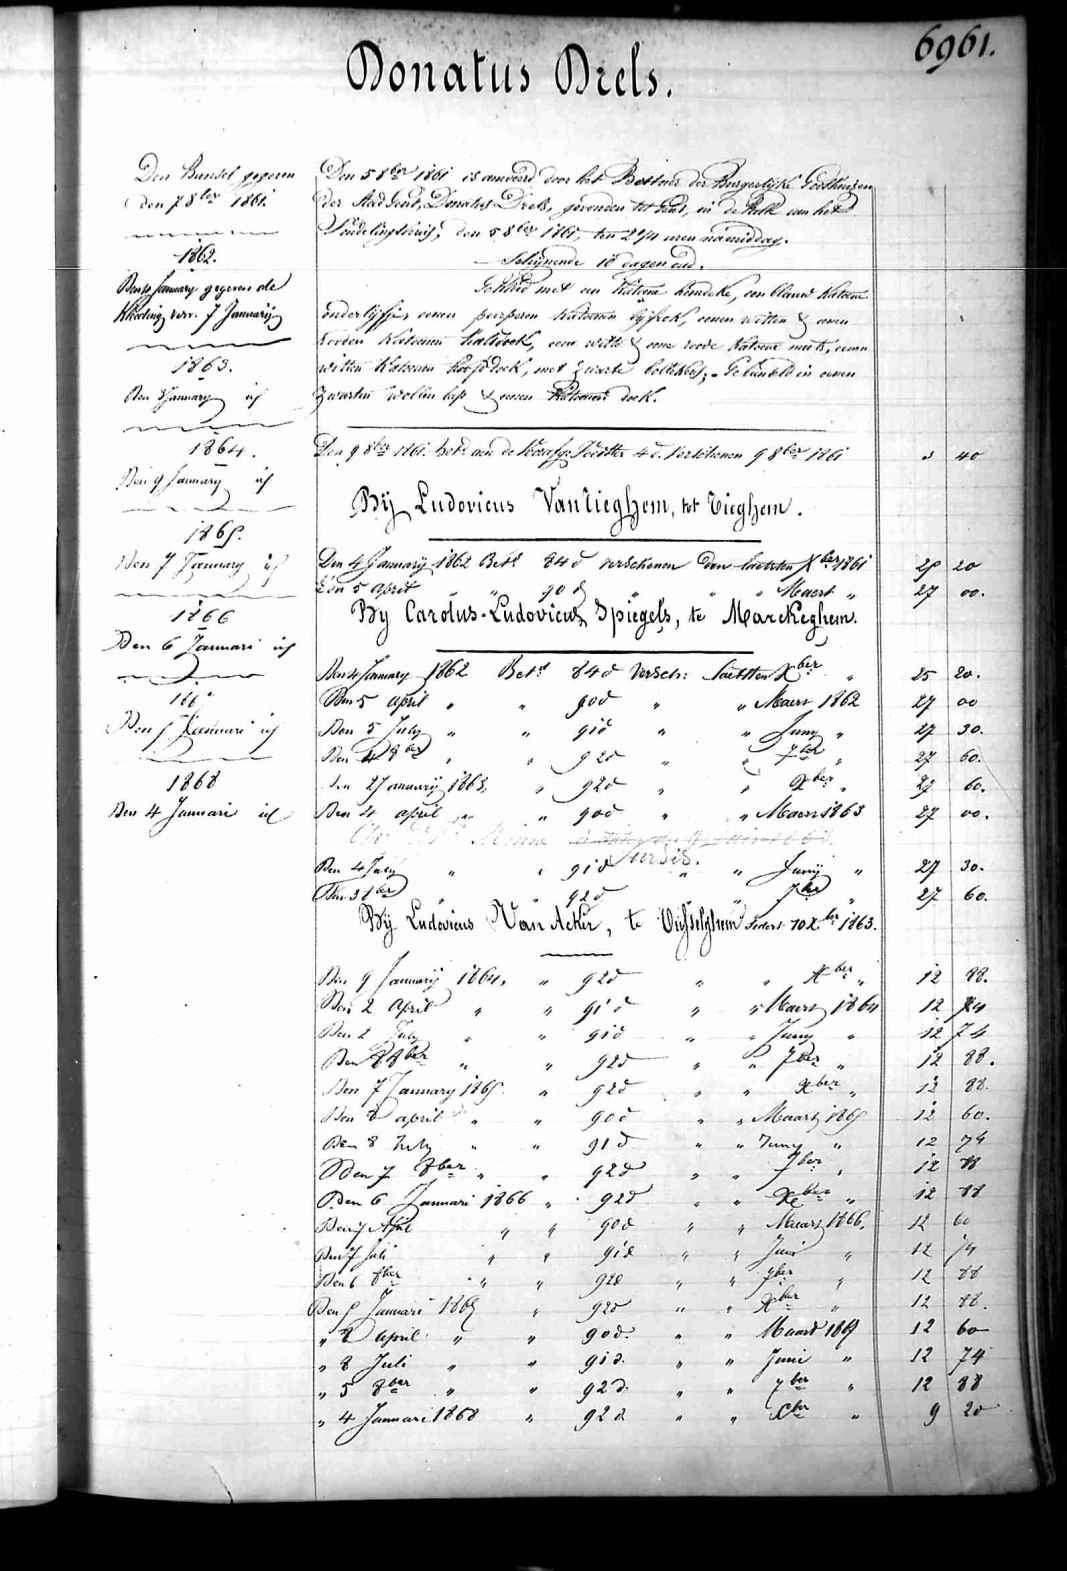 6961.
Donatus Drels.
Den Bunsel gegeven
den 7 8ber 1861.
1862.
Den 4 January gegeven de
Kleeding voor 7 Januarij
1863.
Den 8 January id
1864.
Den 9 January id
1865.
Den 7 January id
1866
Den 6 Januari id
186
Den 5 Januari id
1868
Den 4 Januari id
Den 5 8ber 1861 is aenveerd door het Bestuer der Burgerlijke Godshuizen
der Stad Gent, Donatus Drels, gevonden tot Gent, in de Rolle van het
Vondelinghuis, den 5 8ber 1861, ten 2 3/4 uren namiddag.
Schijnende 10 dagen oud.
Gekleed met een Katoene hemdeke, een blauw Katoene
onderlijfje, eenen peerssen katoenen lijfrok, eenen witten & eenen
rooden Katoenen halsdoek, eene witte & eene roode Katoene muts, eenen
witten Katoenen hoofddoek, met zwarte bollekes; Gebunseld in eenen
zwarten wollen lap & eenen Katoenen doek.
Den 9 8ber 1861 bet. aen de Voedster 4 d. verschenen 9 8ber 1861 " 3 40
Bij Ludovicus VanTieghem, tot Tieghem.
Den 4 Januarij 1862 Bett 84 d verschenen den laetsten Xber 1861 25 20
Den 5 april " " 90 d " " Maert " 27 00.
By Carolus-Ludovicus Spiegels, te Marckeghem.
Den 4 January 1862 Bett 84 d versch: laetsten Xber " 25 20.
Den 5 april " " 90 d " " Maert 1862 27 00
Den 5 July " " 91 d " " Juny " 27 30.
Den 4 8ber " " 92 d " " 7ber " 27 60.
den 2 January 1863. " 92 d " " Xber " 27 60.
Den 4 april " " 90 d " " Maert 1863 27 00.
Sursis.
Den 4 July " " 91 d " " Junij " 27 30.
Den 3 8ber " " 92 d " " 7ber " 27 60.
Bij Ludovicus Van Acker, te Sedert 10 Xber 1863.
Den 9 Januarij 1864. " 92 d " " Xber " 12 88.
Den 2 April " " 91 d " " Maert 1864 12 74
Den 2 July " " 91 d " " Juny " 12 74
Den 8 8ber " " 92 d " " 7ber " 12 88.
Den 7 January 1865 " 92 d " " Xber " 12 88.
Den 8 april " " 90 d " " Maart 1865 12 60.
Den 8 July " " 91 d " " Juny " 12 74
Den 7 8ber " " 92 d " " 7ber " 12 88
Den 6 Januari 1866 " 92 d " " Xber " 12 88
Den 7 April " " 90 d " " Maart 1866. 12 60
Den 7 Juli " " 91 d " " Juni " 12 74
Den 6 8ber " " 92 d " " 7ber " 12 88
Den 5 Januari 1867 " 92 d " " Xber " 12 88.
" 2 april " " 90 d. " " Maart 1867 12 60
" 8 Juli " " 91 d. " " Juni " 12 74
" 5 8ber " " 92 d. " " 7ber " 12 88
" 4 Januari 1868 " 92 d " " Xber " 9 20